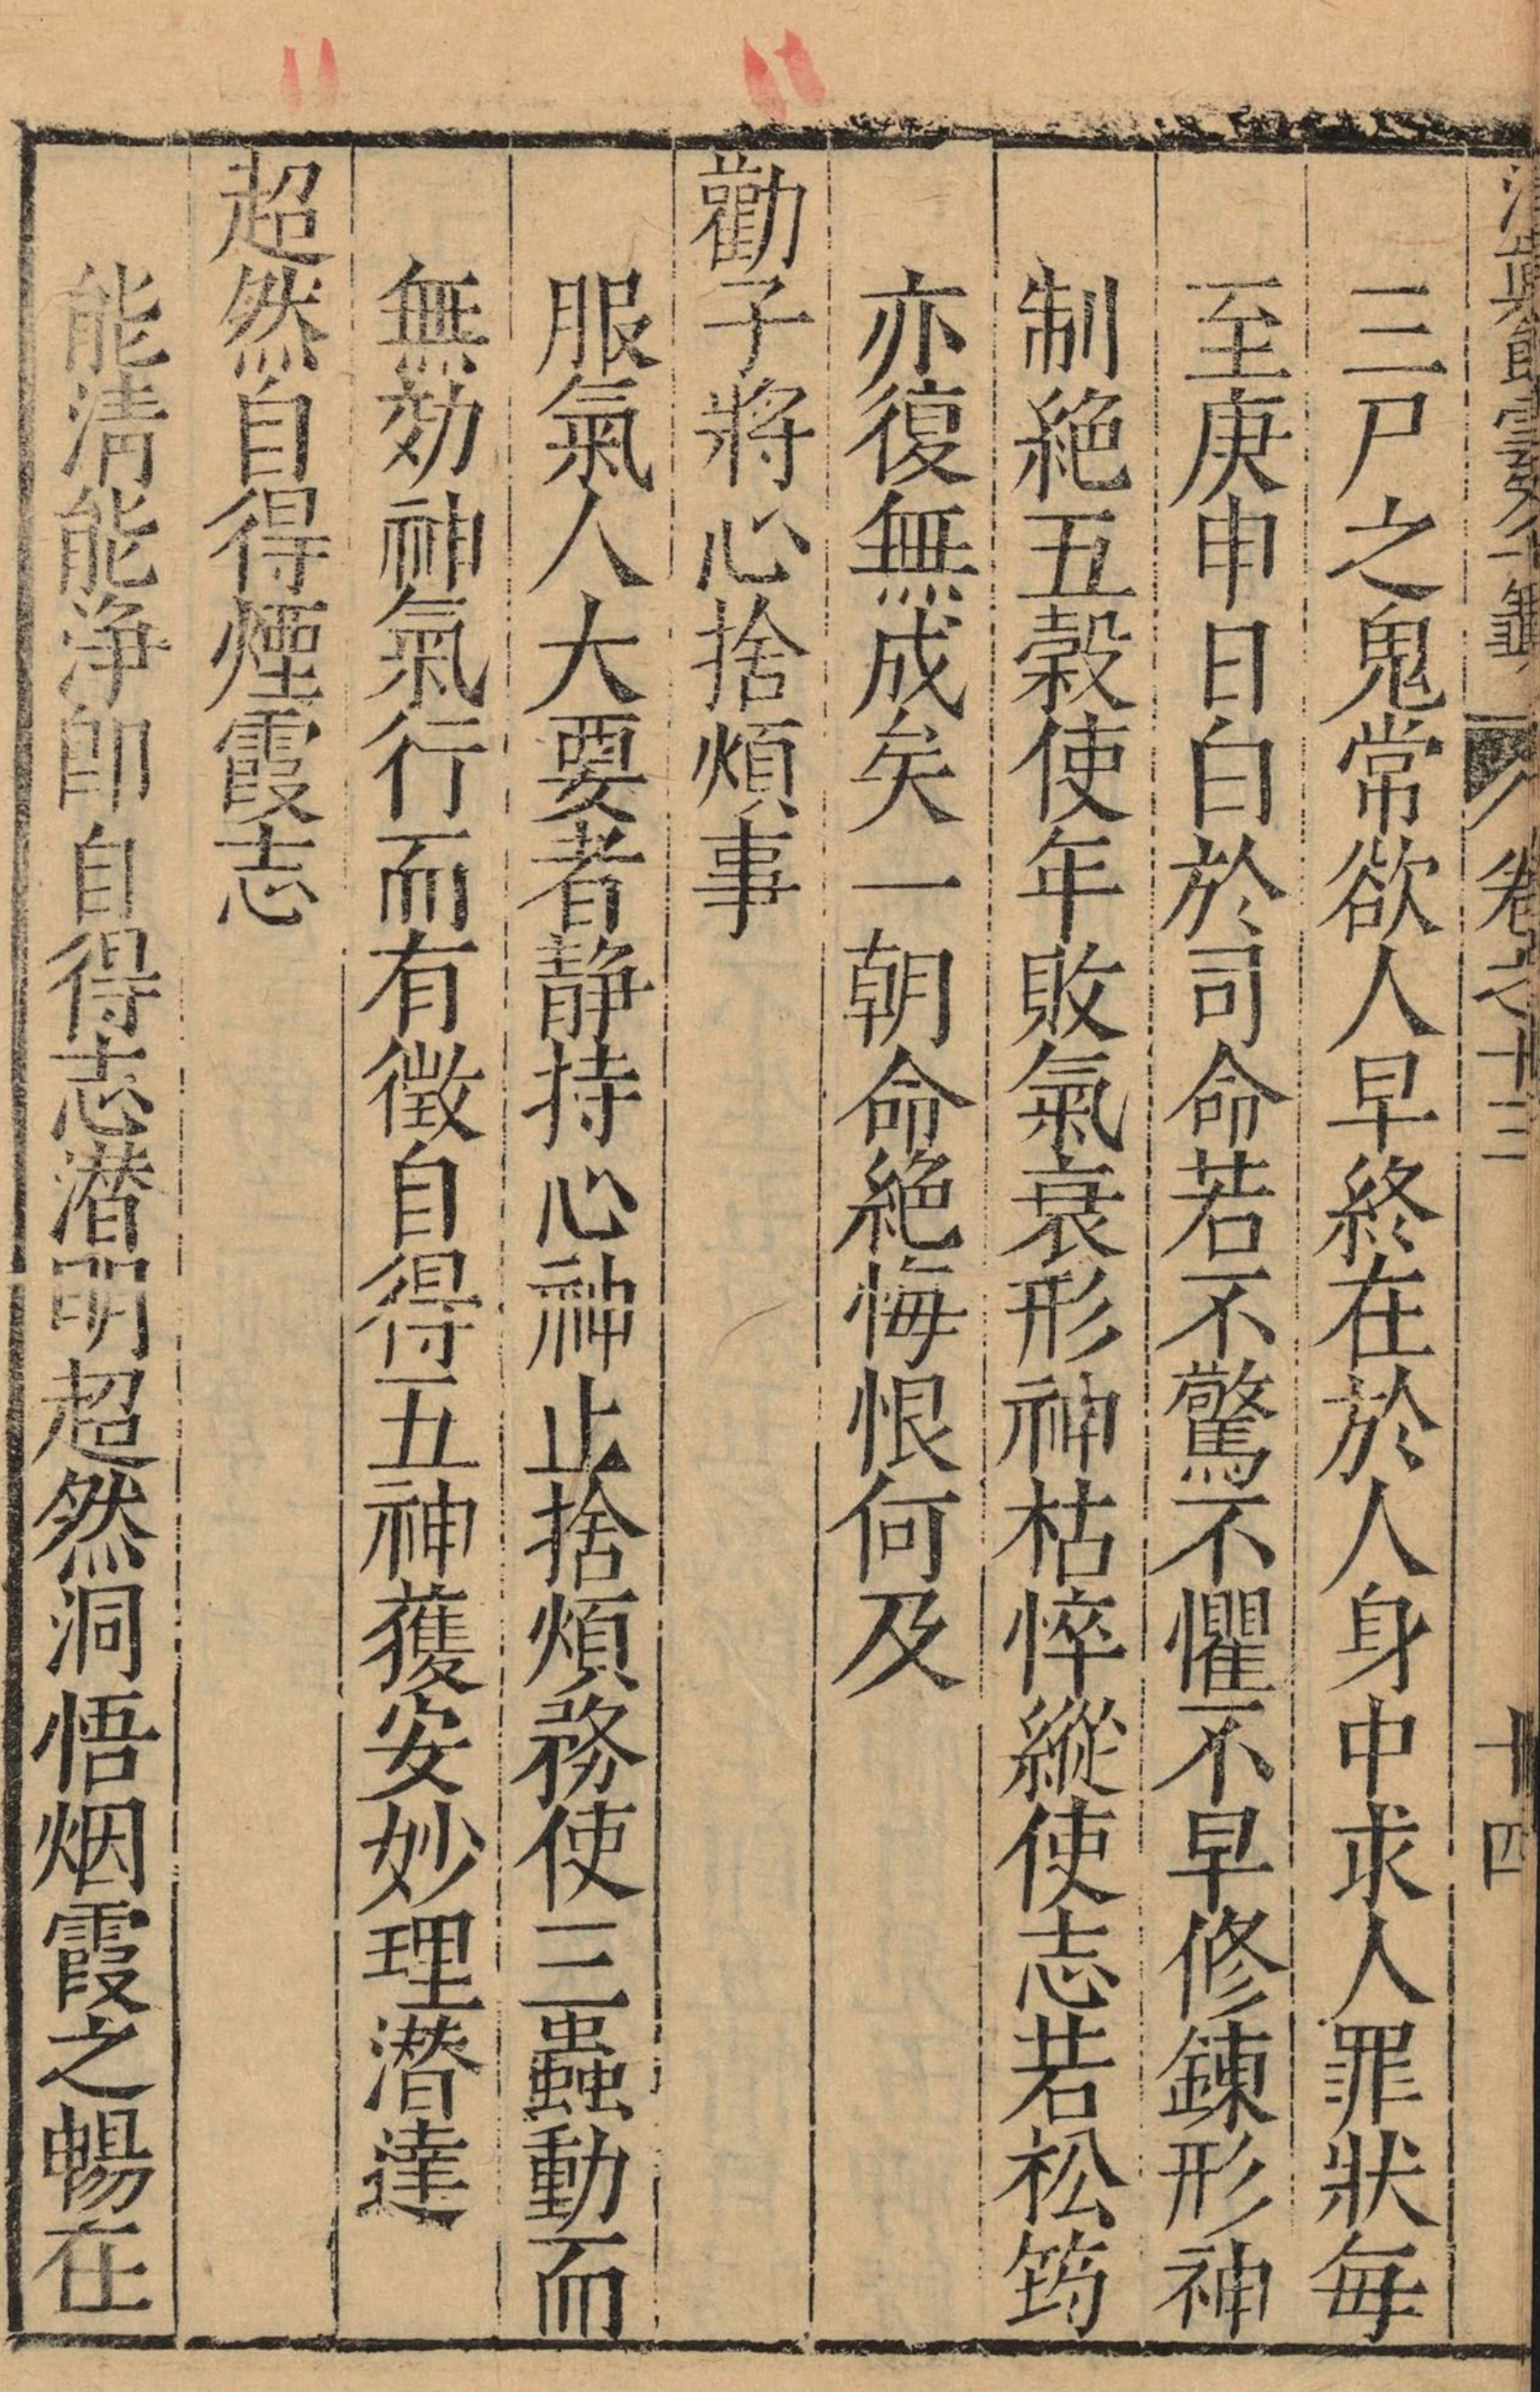 清真館雲笈七籤 卷之十三 十四
三尸之鬼常欲人早終在於人身中求人罪狀每
至庚申日白於司命若不驚不懼不早修鍊形神
制絶五穀使年敗氣衰形神枯悴縱使志若松筠
亦復無成矣一朝命絶悔恨何及
勸子將心捨煩事
服氣人大要者靜持心神止捨煩務使三蟲動而
無効神氣行而有徵自得五神獲安妙理潛達
超然自得煙霞志
能清能淨即自得志潛明超然洞悟烟霞之暢在